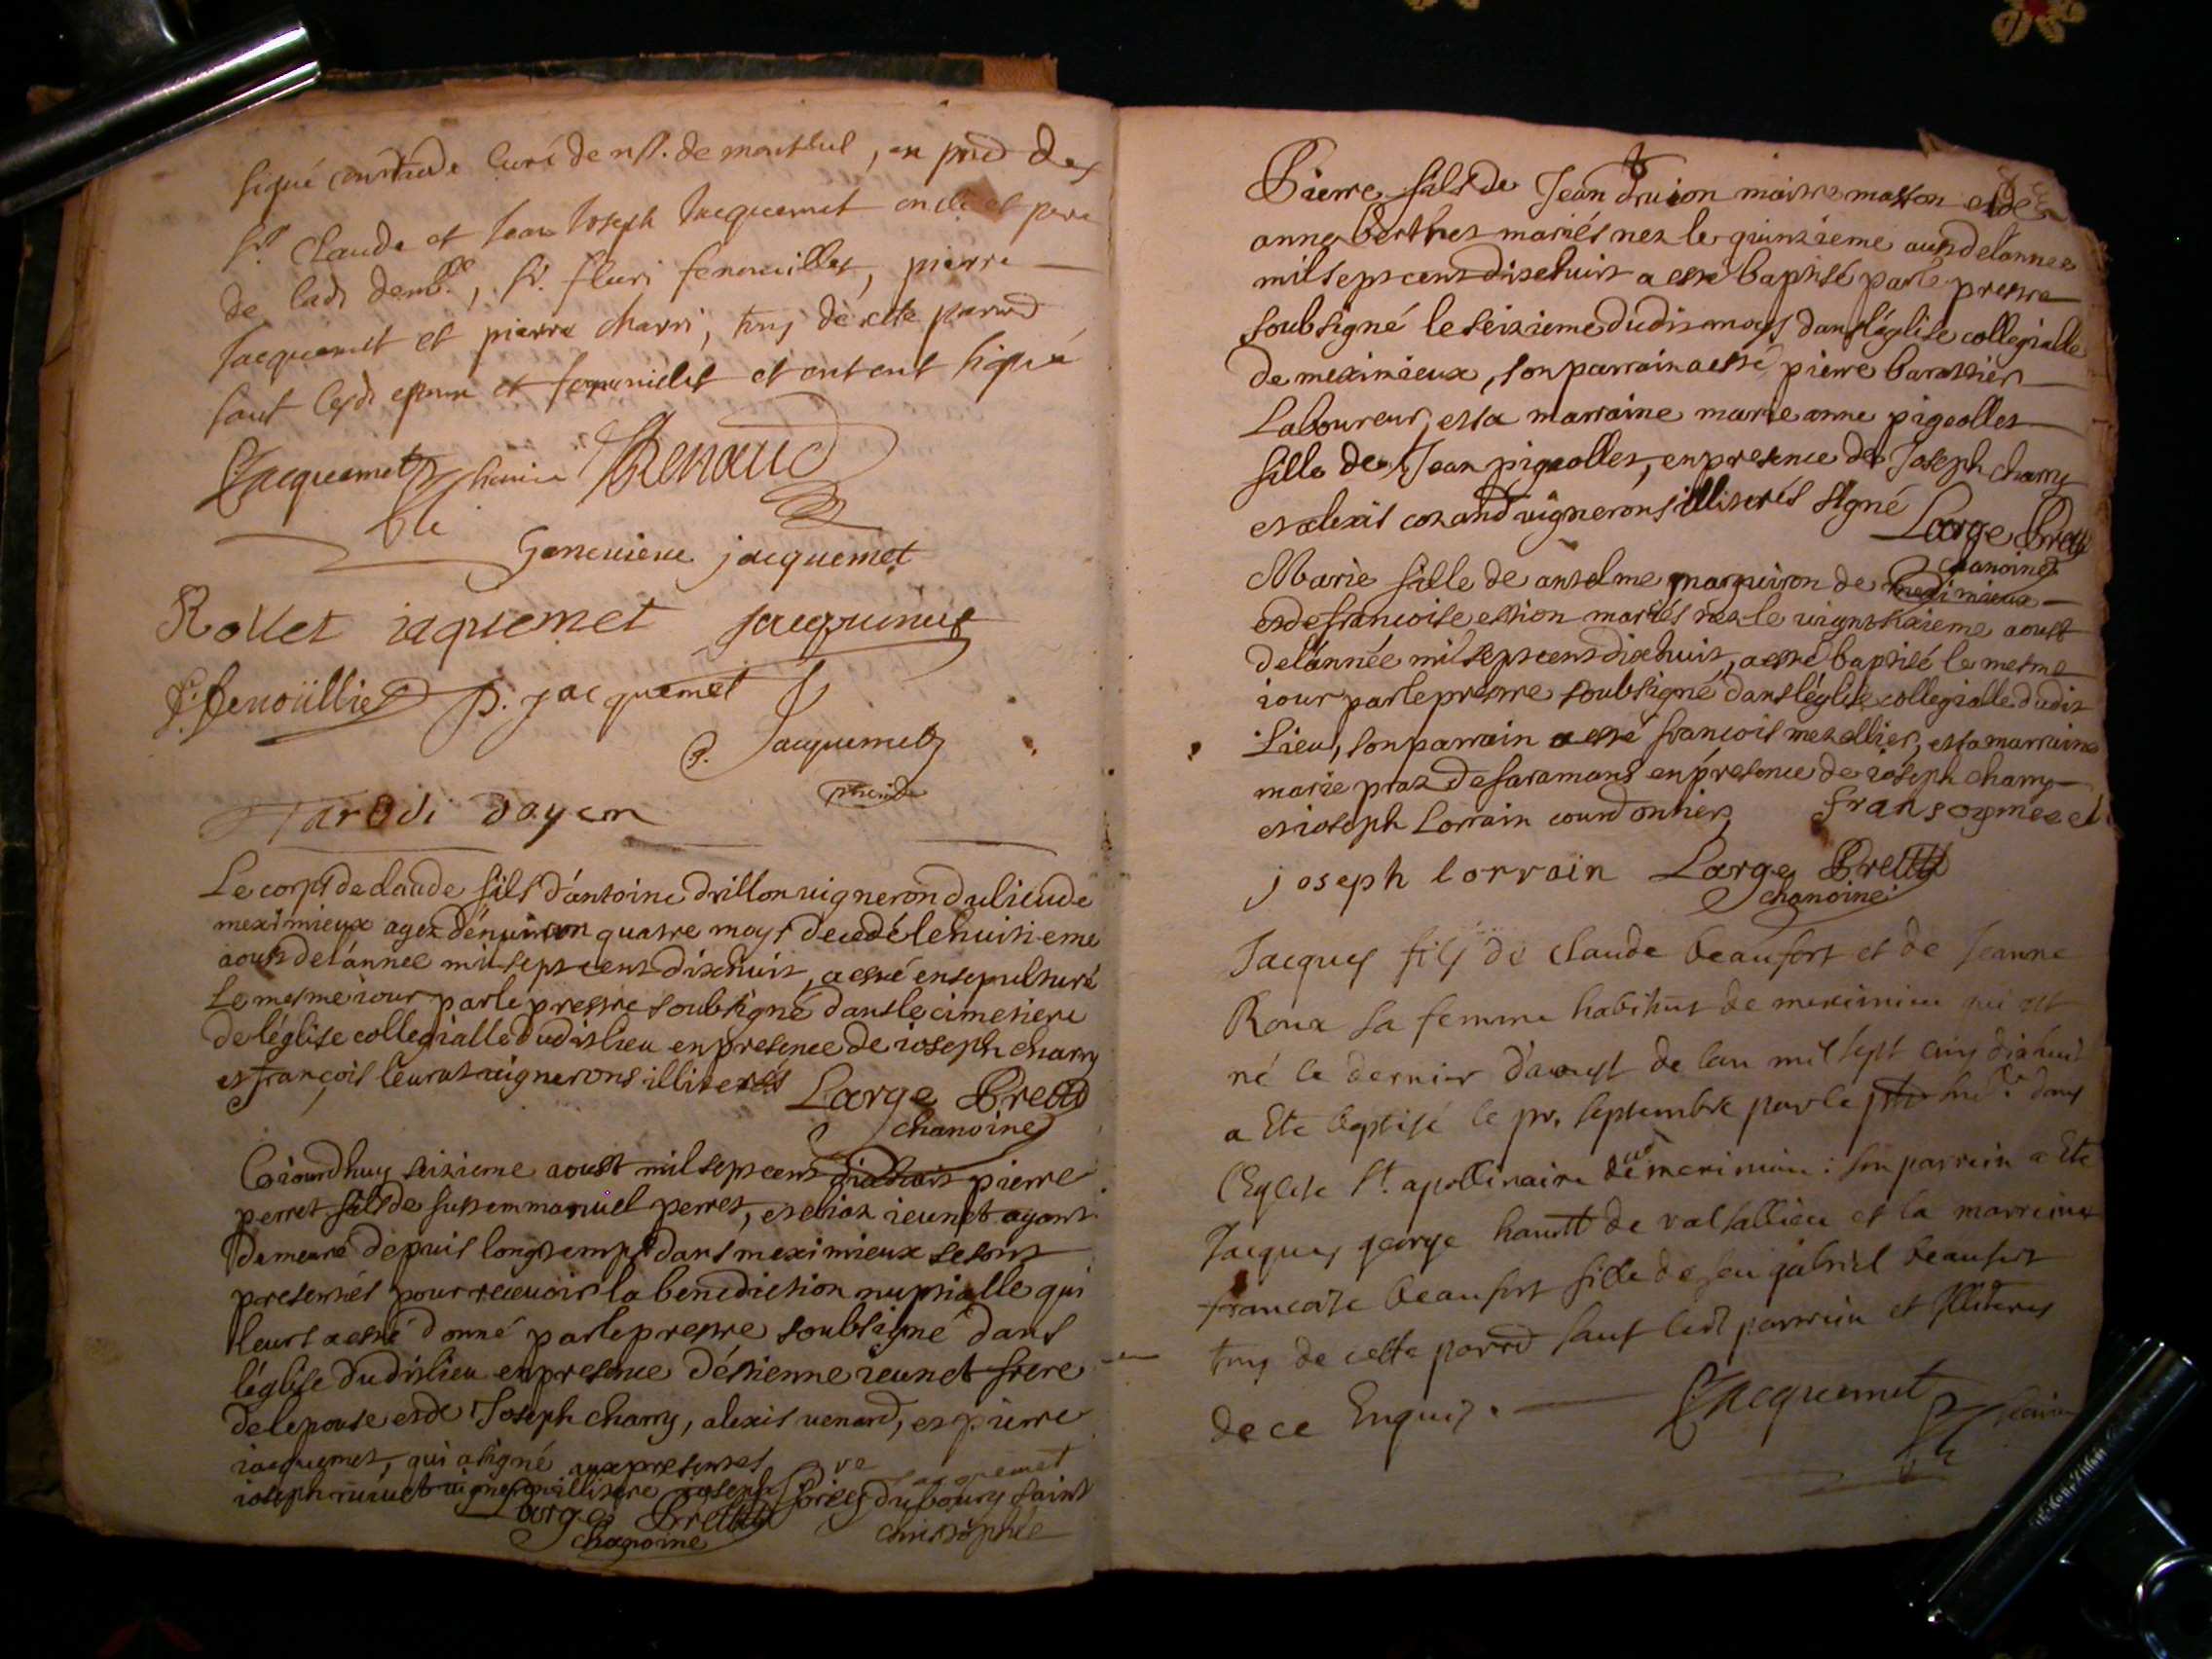 signé curé de nd. de montluel, en prnce des
Srs. Claude et Jean Joseph Jacquemet oncle et pere
de lade demlle, Sr. fleuri fenouillet, pierre
Jacquemet et pierre charri, tous de cette parsse
sauf lesds et et ont signé
Jacquemet Renaud
Genevieve jacquemet
Rollet iaquemet jacqumet
f. fenoüillet p. jacquemet
P. Jacquemet
doyen
Le corps de claude fils d'antoine drillon uigneron du lieu de
meximieux agez d'enuiron quatre moys decedé le huitieme
aoust de l'année mil sept cent dixhuit, a esté ensepulturé
le mesme iour par le prestre soubsigné dans le cimetiere
de léglise collegialle dudit lieu en presence de ioseph charry
et françois leurat uignerons illiterés Large Bretta
chanoine
Ceiourdhuy seizieme aoust mil sept cent dixhuit pierre
perret fils de fust emmanuel perret, et elioz ieunet ayant
demeuré depuis longtemps dans meximieux se sont
presentés pour receuoir la benediction nuptialle qui
leurs a esté donné par le prestre soubsigné dans
léglise dudit lieu en presence d'étienne ieunet frere
de lepouse et de Joseph charry, alexis uenard, et pierre
iacquemet, qui a signé aux presentes jacquemet
ioseph illitere ioseph du bourg saint
Large Bretta christophle
chanoine
Pierre fils de Jean druion maitre masson et de
anne berthet mariés nez le quinzieme aust de lannee
mil sept cent dixehuit a esté baptisé par le prestre
soubsigné le seizieme dudit moys dans léglise collegialle
de meximieux, son parrain a esté pierre barattier
Laboureur, et sa marraine marie anne pigeollet
fille de Jean pigeollet, en presence de Joseph charry
et alexis cozand uignerons illiterés signé Large Bretta
chanoine
Marie fille de anselme marguiron de meximieux
et de francoise estion mariés nez le uingt sixieme aoust
de lánnée mil sept cent dixhuit, a esté baptisé le mesme
iour par le prestre soubsigné dans léglise collegialle dudit
Lieu, son parrain a esté francois mezellier, et sa marraine
marie praz de faramans en présence de ióseph charry
et ioseph Lorrain courdonnier fransoy
joseph lorrain Large Bretta
chanoine
Jacques fils de claude beaufort et de Jeanne
Roux sa femme habitants de meximieu qui est
né le dernier d'aoust de lan mil sept cens dixhuit
a Ete baptisé le pr. septembre par le dans
l'Eglise St. apollinaire de meximieu : son parrain a Ete
Jacques george de et la marreine
francoise beaufort fille de feu gabriel beaufort
tous de cette parrse sauf led. parrein et Illiteres
de ce Enquis. Jacquemet